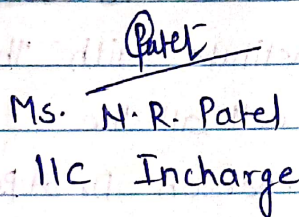 Patel
Ms. N.R. Patel
IIC Incharge